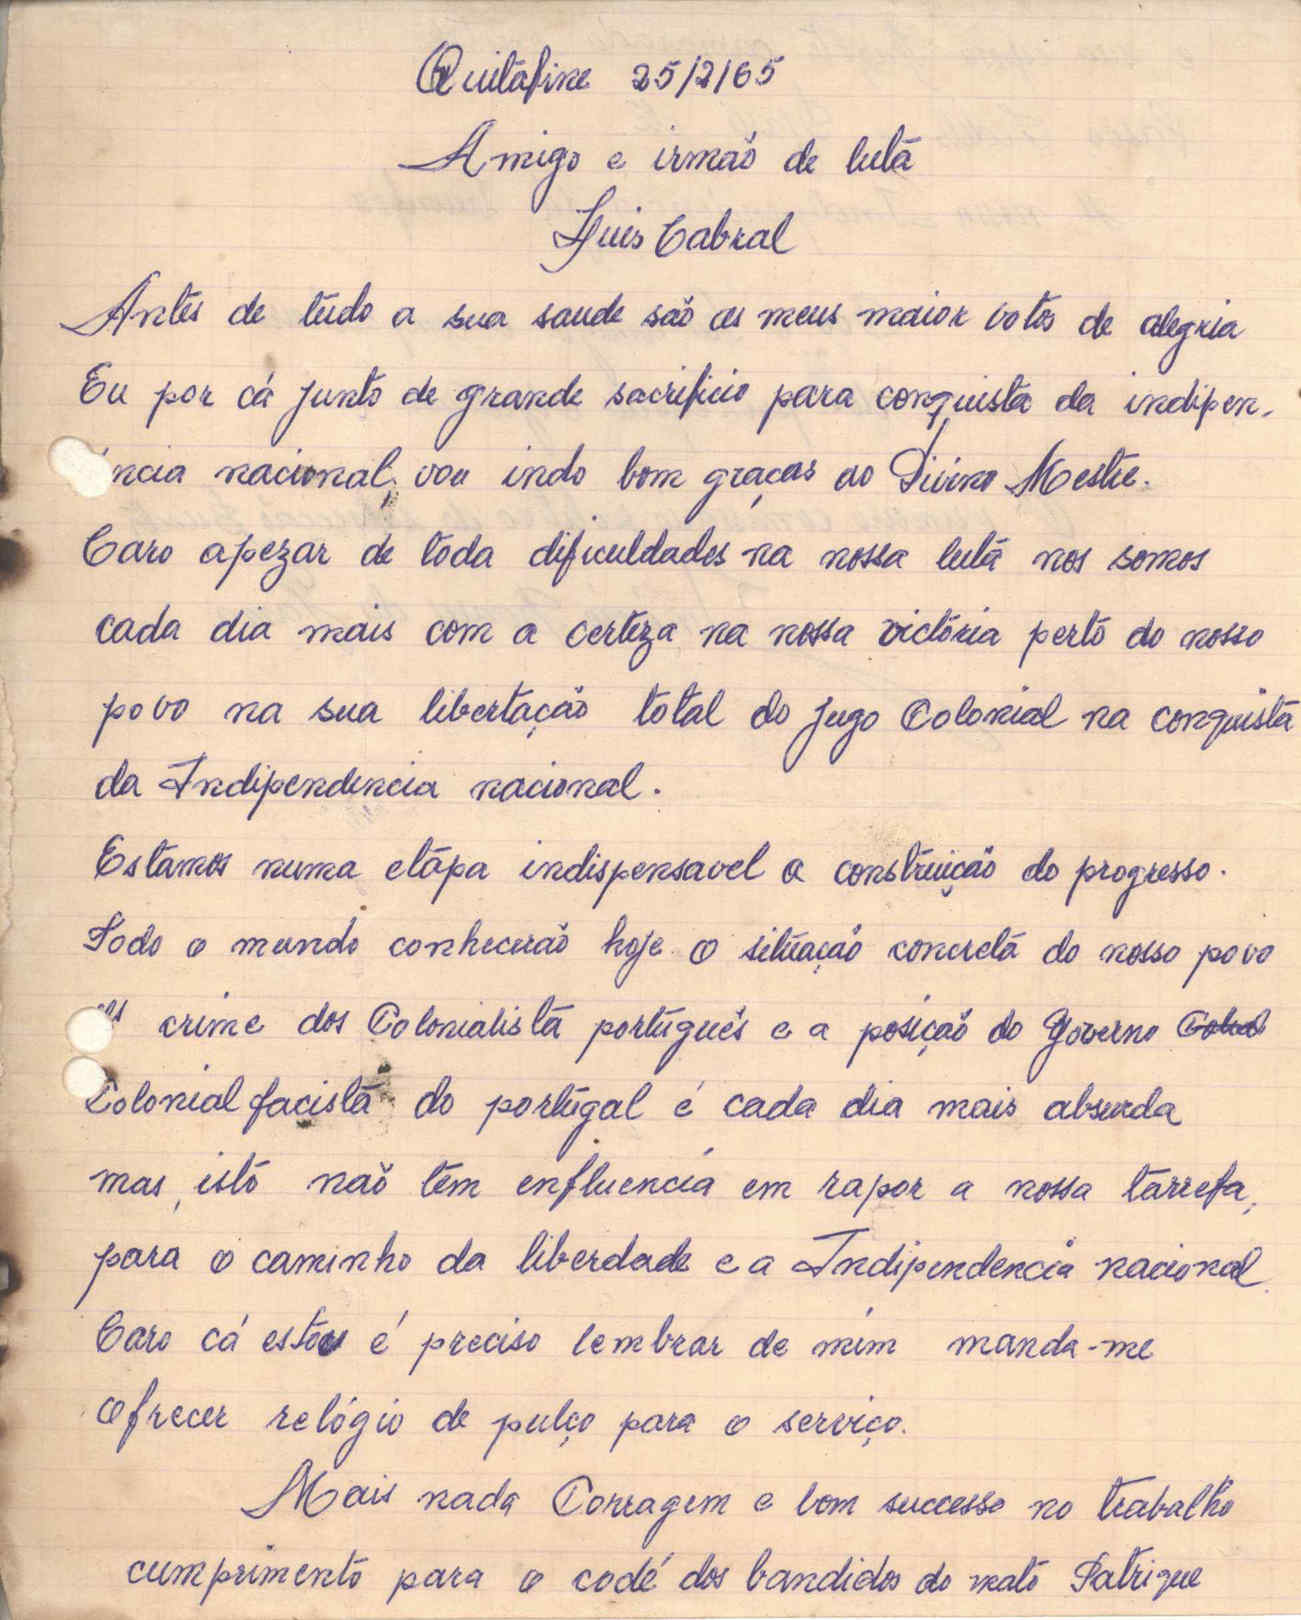 Quitáfine 25/2/65
Amigo e irmão de luta
Luis Cabral
Antes de tudo a sua saude são os meus maior votos de alegria
Eu por cá junto de grande sacrificio para conquista da indipen-
ncia nacional, vou indo bom graças ao Divino Mestre.
Caro apezar de toda dificuldades na nossa luta nos somos
cada dia mais com a certeza na nossa victória perto do nosso
povo na sua libertação total do jugo Colonial na conquista
da Indipendencia nacional.
Estamos numa etapa indispensavel a construição do progresso.
Todo o mundo conhecerão hoje o situação concreta do nosso povo
os crime dos Colonialista português e a posição do Governo
Colonial facista do portugal é cada dia mais absurda
mas, isto não tem enfluencia em rapor a nossa tarrefa,
para o caminho da liberdade e a Indipendencia nacional.
Caro cá estou é preciso lembrar de mim manda-me
ofrecer relógio de pulço para o serviço.
Mais nada Corragem e bom successo no trabalho
cumprimento para o codé dos bandidos do mato Patrique